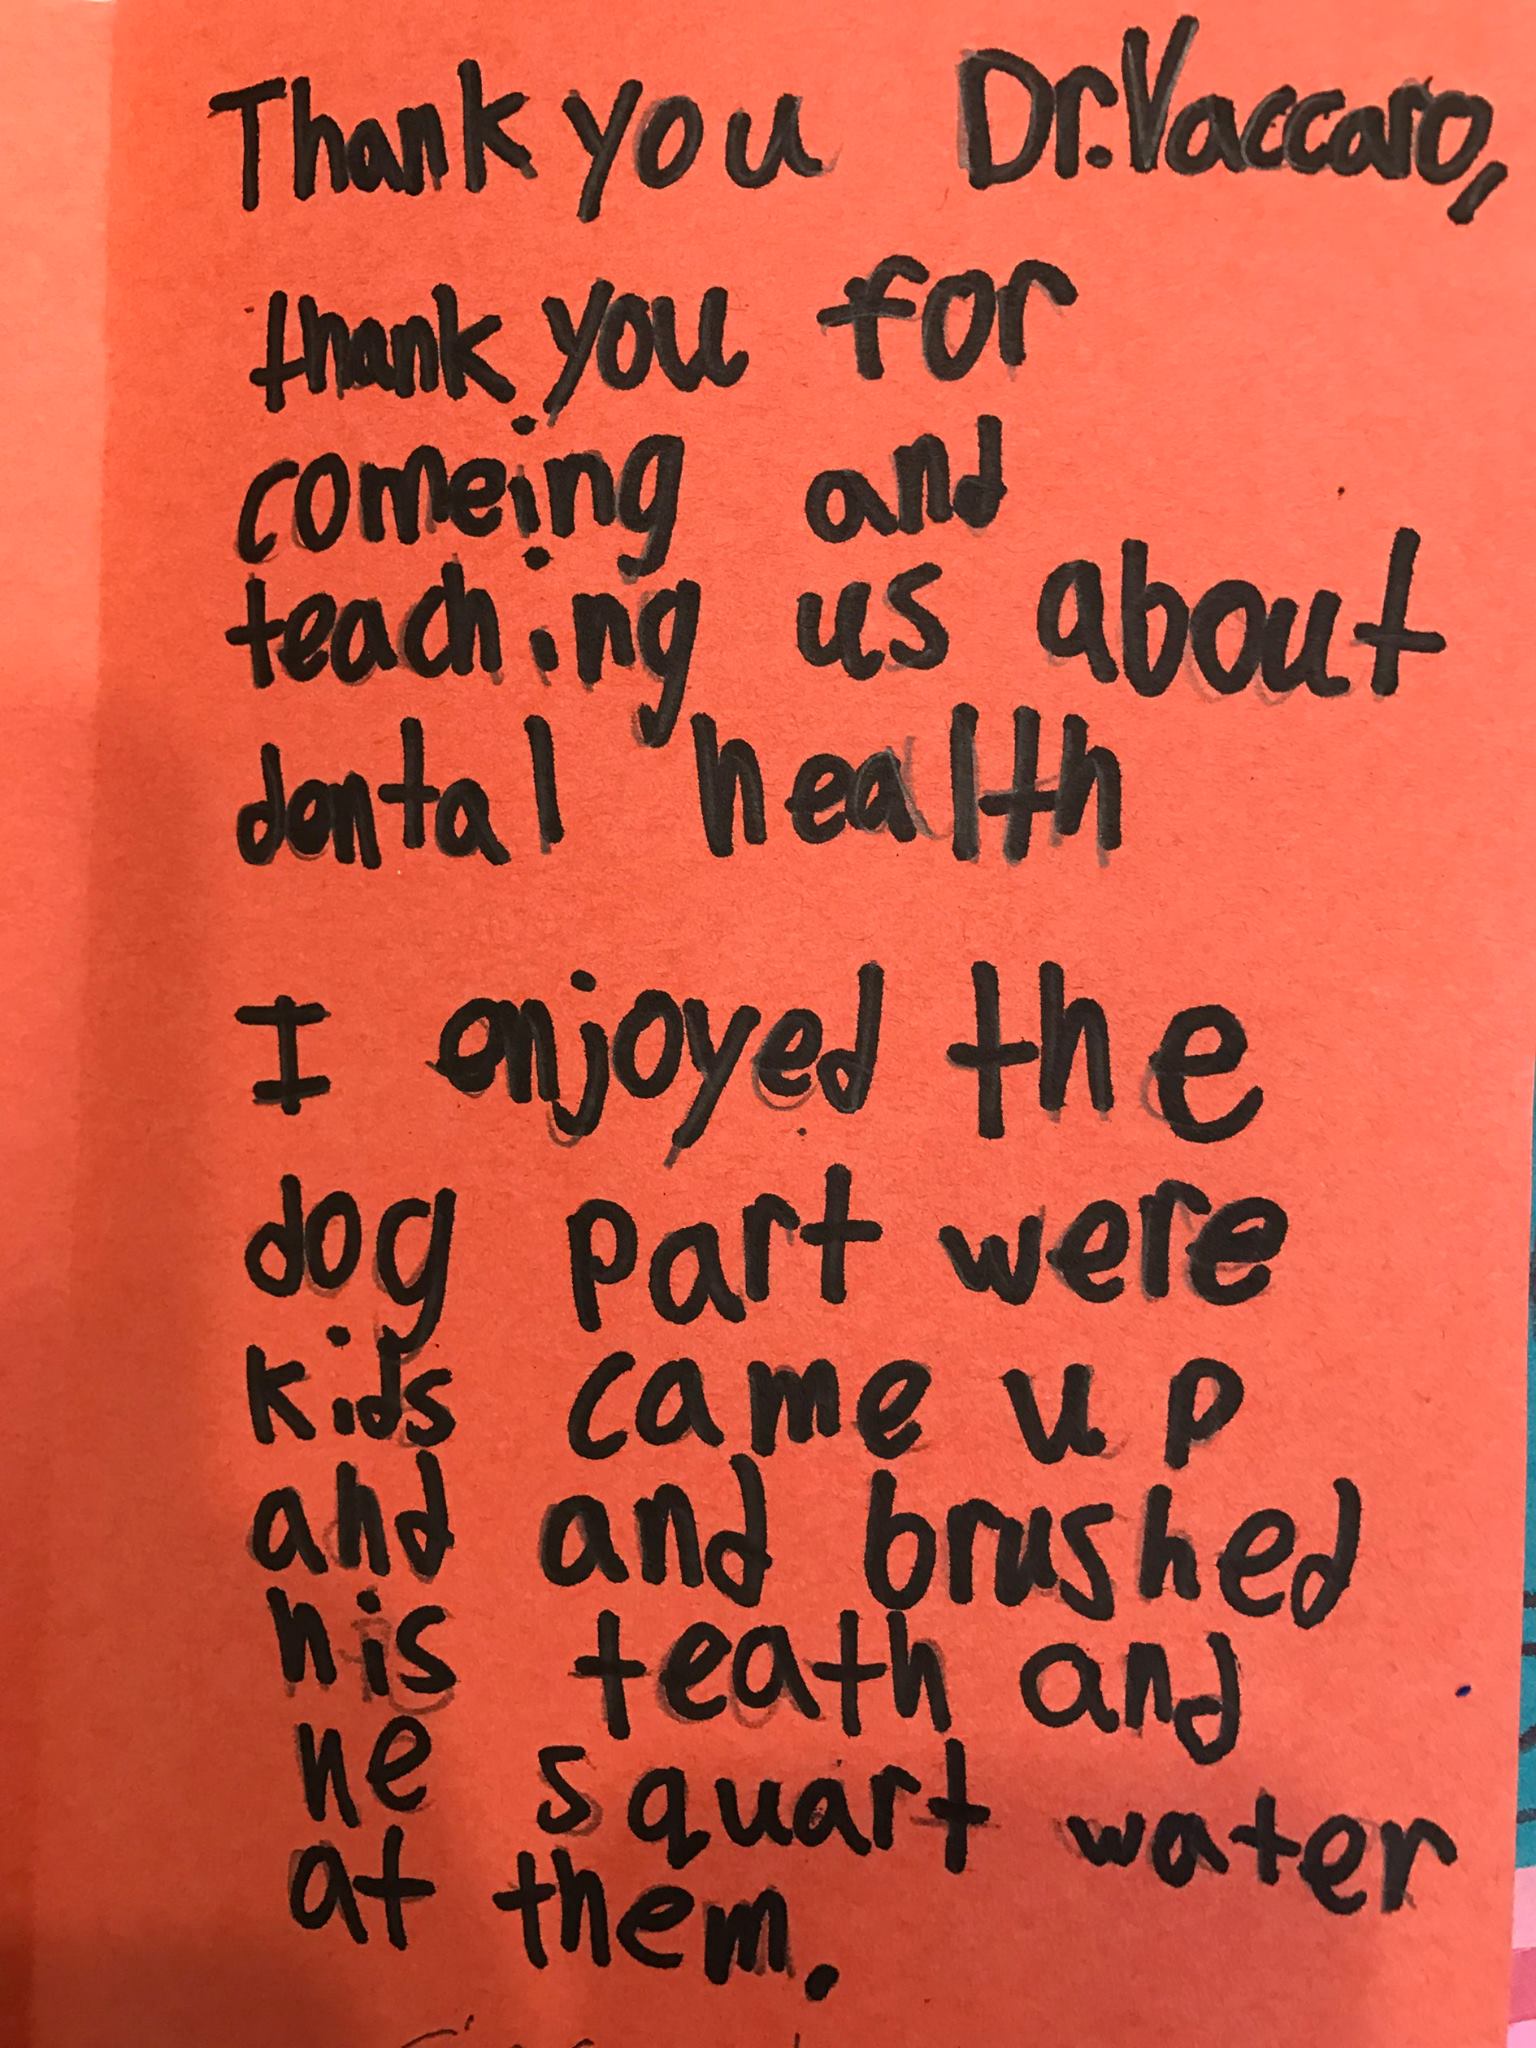 Thank you Dr. Vaccaro,
thank you for
comeing and
teaching us about
dental health
I enjoyed the
dog part were
kids came up
and and brushed
his teath and
he squart water
at them.